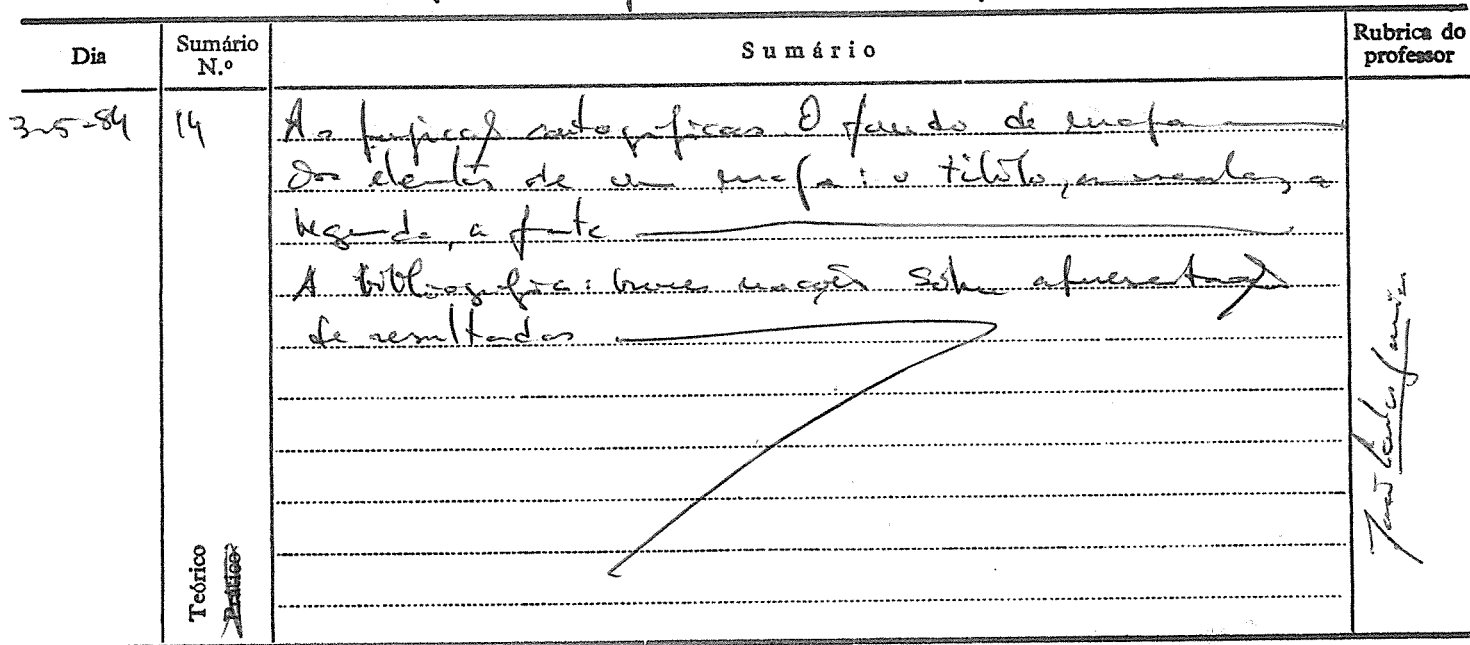 Dia
Sumário N.º
Sumário
Rubrica do professor
3-5-84
14
As projecções cartográficas. O fundo de mapa
Os elementos de um mapa: o título, a escala, a
legenda, a fonte
A bibliografia: breves noções sobre apresentação
de resultados
Teórico
Prático